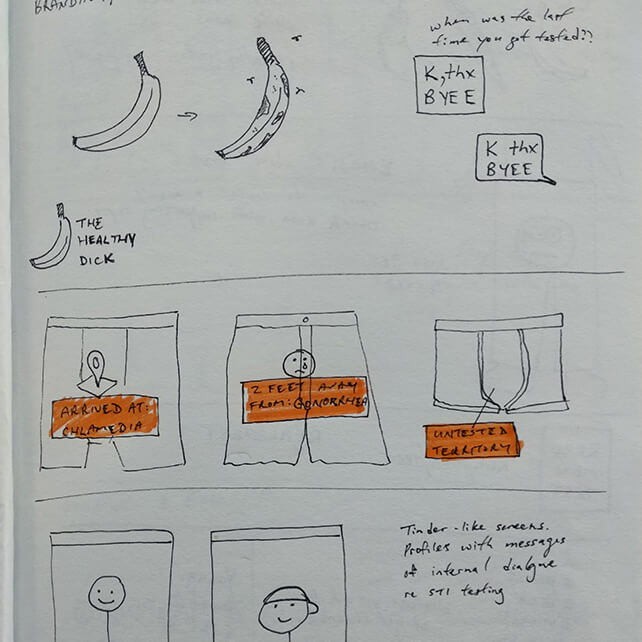 BRANDING
when was the last
time you got tested??
K, thx
BYEE
K thx
BYEE
THE
HEALTHY
DICK
ARRIVED AT:
CHLAMEDIA
2 FEET AWAY
FROM: GONORRHEA
UNTESTED
TERRITORY
Tinder-like screens.
Profiles with messages
of internal dialogue
re STI testing